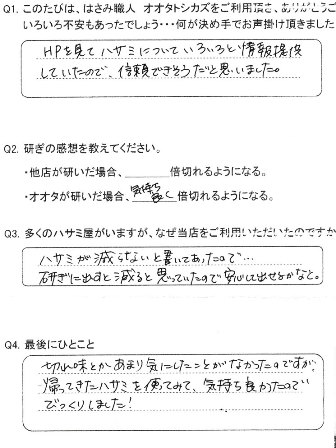 Q1. このたびは、はさみ職人 オオタトシカズをご利用頂き、ありがとうご
いろいろ不安もあったでしょう・・・何が決め手でお声掛け頂きました
HPを見てハサミについていろいろと情報提供
していたので、信頼できそうだと思いました。
Q2. 研ぎの感想を教えてください。
・他店が研いだ場合、______倍切れるようになる。
・オオタが研いだ場合、気持ち良く 倍切れるようになる。
Q3. 多くのハサミ屋がいますが、なぜ当店をご利用いただいたのですか
ハサミが減らないと書いてあったので…
研ぎに出すと減ると思っていたので安心して出せるかなと。
Q4. 最後にひとこと
切れ味とかあまり気にしたことがなかったのですが、
帰ってきたハサミを使てみて、気持ち良かったので
びっくりしました!